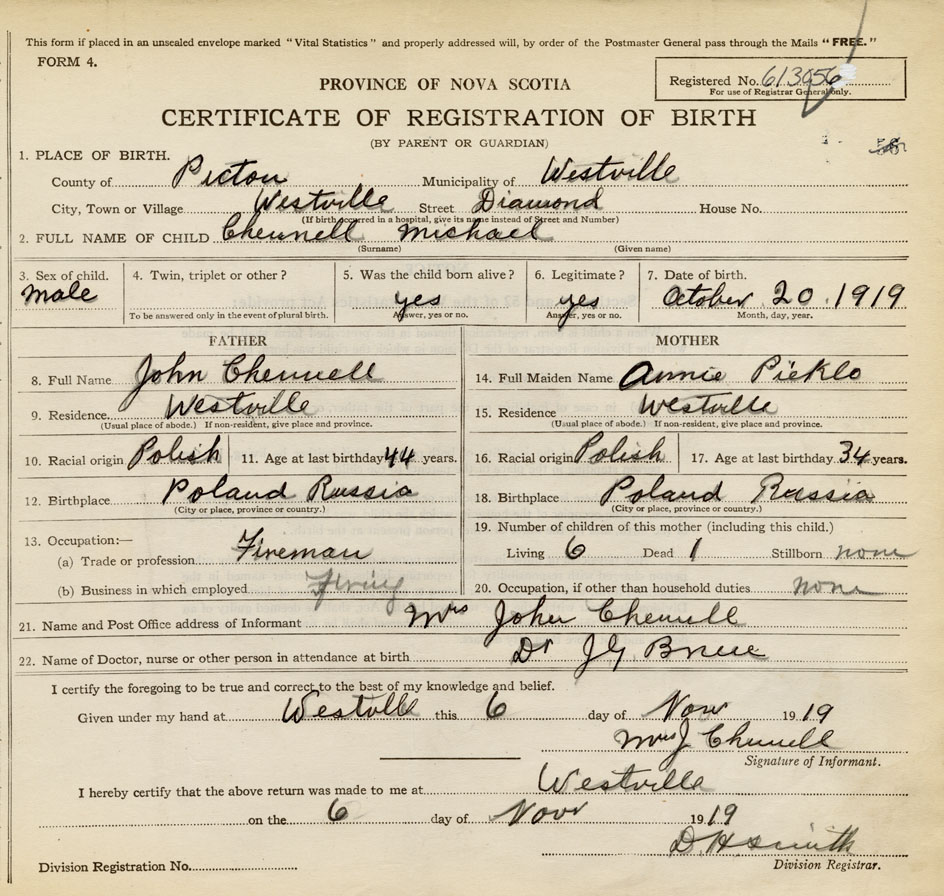 This form if placed in an unsealed envelope marked "Vital Statistics" and properly addressed will, by order of the Postmaster General pass through the Mails "FREE."
FORM 4.
Registered No. 613956
For use of Registrar General only.
PROVINCE OF NOVA SCOTIA
CERTIFICATE OF REGISTRATION OF BIRTH
(BY PARENT OR GUARDIAN)
1. PLACE OF BIRTH.
County of Pictou Municipality of Westville
City, Town or Village Westville Street Diamond House No.
(If birth occurred in a hospital, give its name instead of Street and Number)
2. FULL NAME OF CHILD Chennell Michael
(Surname) (Given name)
3. Sex of child. 4. Twin, triplet or other? 5. Was the child born alive? 6. Legitimate? 7. Date of birth.
male yes yes October 20. 1919
To be answered only in the event of plural birth. Answer, yes or no. Answer, yes or no. Month, day, year.
FATHER MOTHER
8. Full Name John Chennell 14. Full Maiden Name Annie Picklo
9. Residence Westville 15. Residence Westville
(Usual place of abode.) If non-resident, give place and province. (Usual place of abode.) If non-resident, give place and province.
10. Racial origin Polish 11. Age at last birthday 44 years. 16. Racial origin Polish 17. Age at last birthday 34 years.
12. Birthplace Poland Russia 18. Birthplace Poland Russia
(City or place, province or country.) (City or place, province or country.)
13. Occupation:— 19. Number of children of this mother (including this child.)
(a) Trade or profession Fireman Living 6 Dead 1 Stillborn none
(b) Business in which employed Firing 20. Occupation, if other than household duties none
21. Name and Post Office address of Informant Mrs John Chennell
22. Name of Doctor, nurse or other person in attendance at birth Dr J G
I certify the foregoing to be true and correct to the best of my knowledge and belief.
Given under my hand at Westville this 6 day of Nov 1919
Mrs J Chennell
Signature of Informant.
I hereby certify that the above return was made to me at Westville
on the 6 day of Nov 1919
D. H. Smith
Division Registration No. Division Registrar.